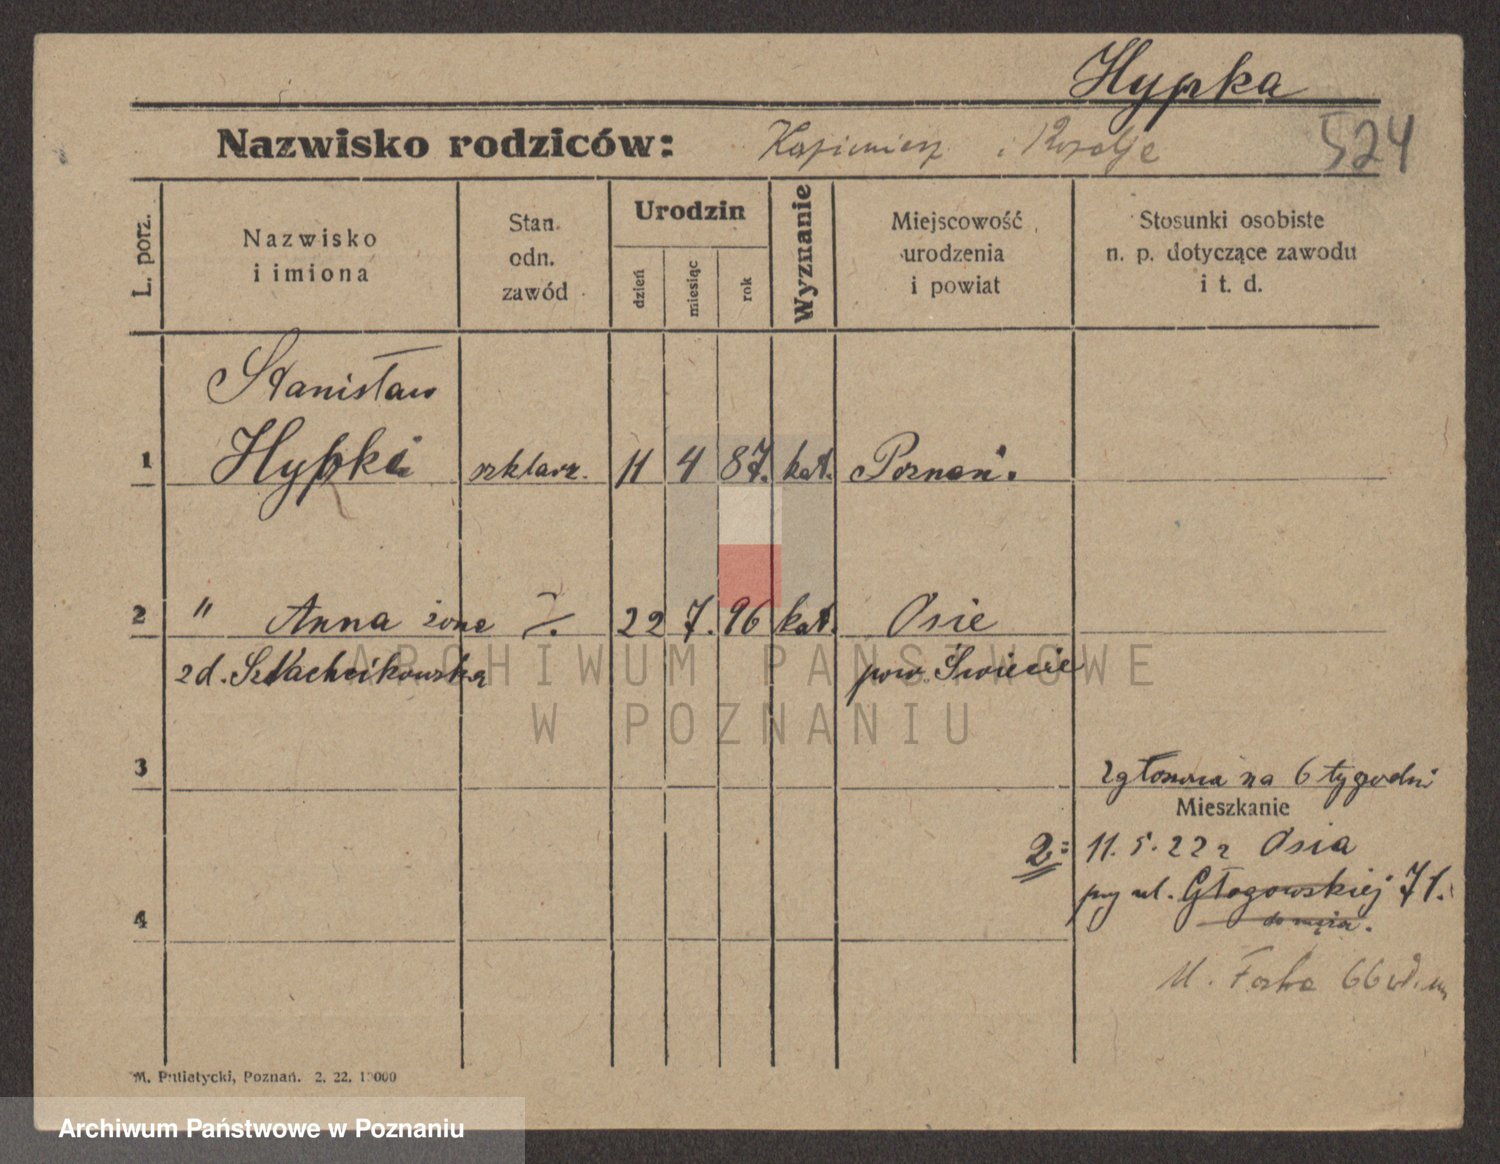 Hypka
Nazwisko rodziców: Kazimierz i Rozalje 524
L. porz.
Nazwisko
i imiona
Stan.
odn.
zawód
Urodzin
dzień
miesiąc
rok
Wyznanie
Miejscowość
urodzenia
i powiat
Stosunki osobiste
n. p. dotyczące zawodu
i t. d.
Stanisław
1 Hypka szklarz. 11 4 87. kat. Poznań.
2 " Anna żona %. 22 7. 96 kat. Osie
zd. Szlachcikowska pow. Świecie
ARCHIWUM PAŃSTWOWE
W POZNANIU
3
zgłoszona na 6 tygodni
Mieszkanie
2: 11. 5. 22 z Osia
przy ul. Głogowskiej 71.
4 do męża.
M. Focha 66
M. Putiatycki, Poznań. 2. 22. 10000
Archiwum Państwowe w Poznaniu